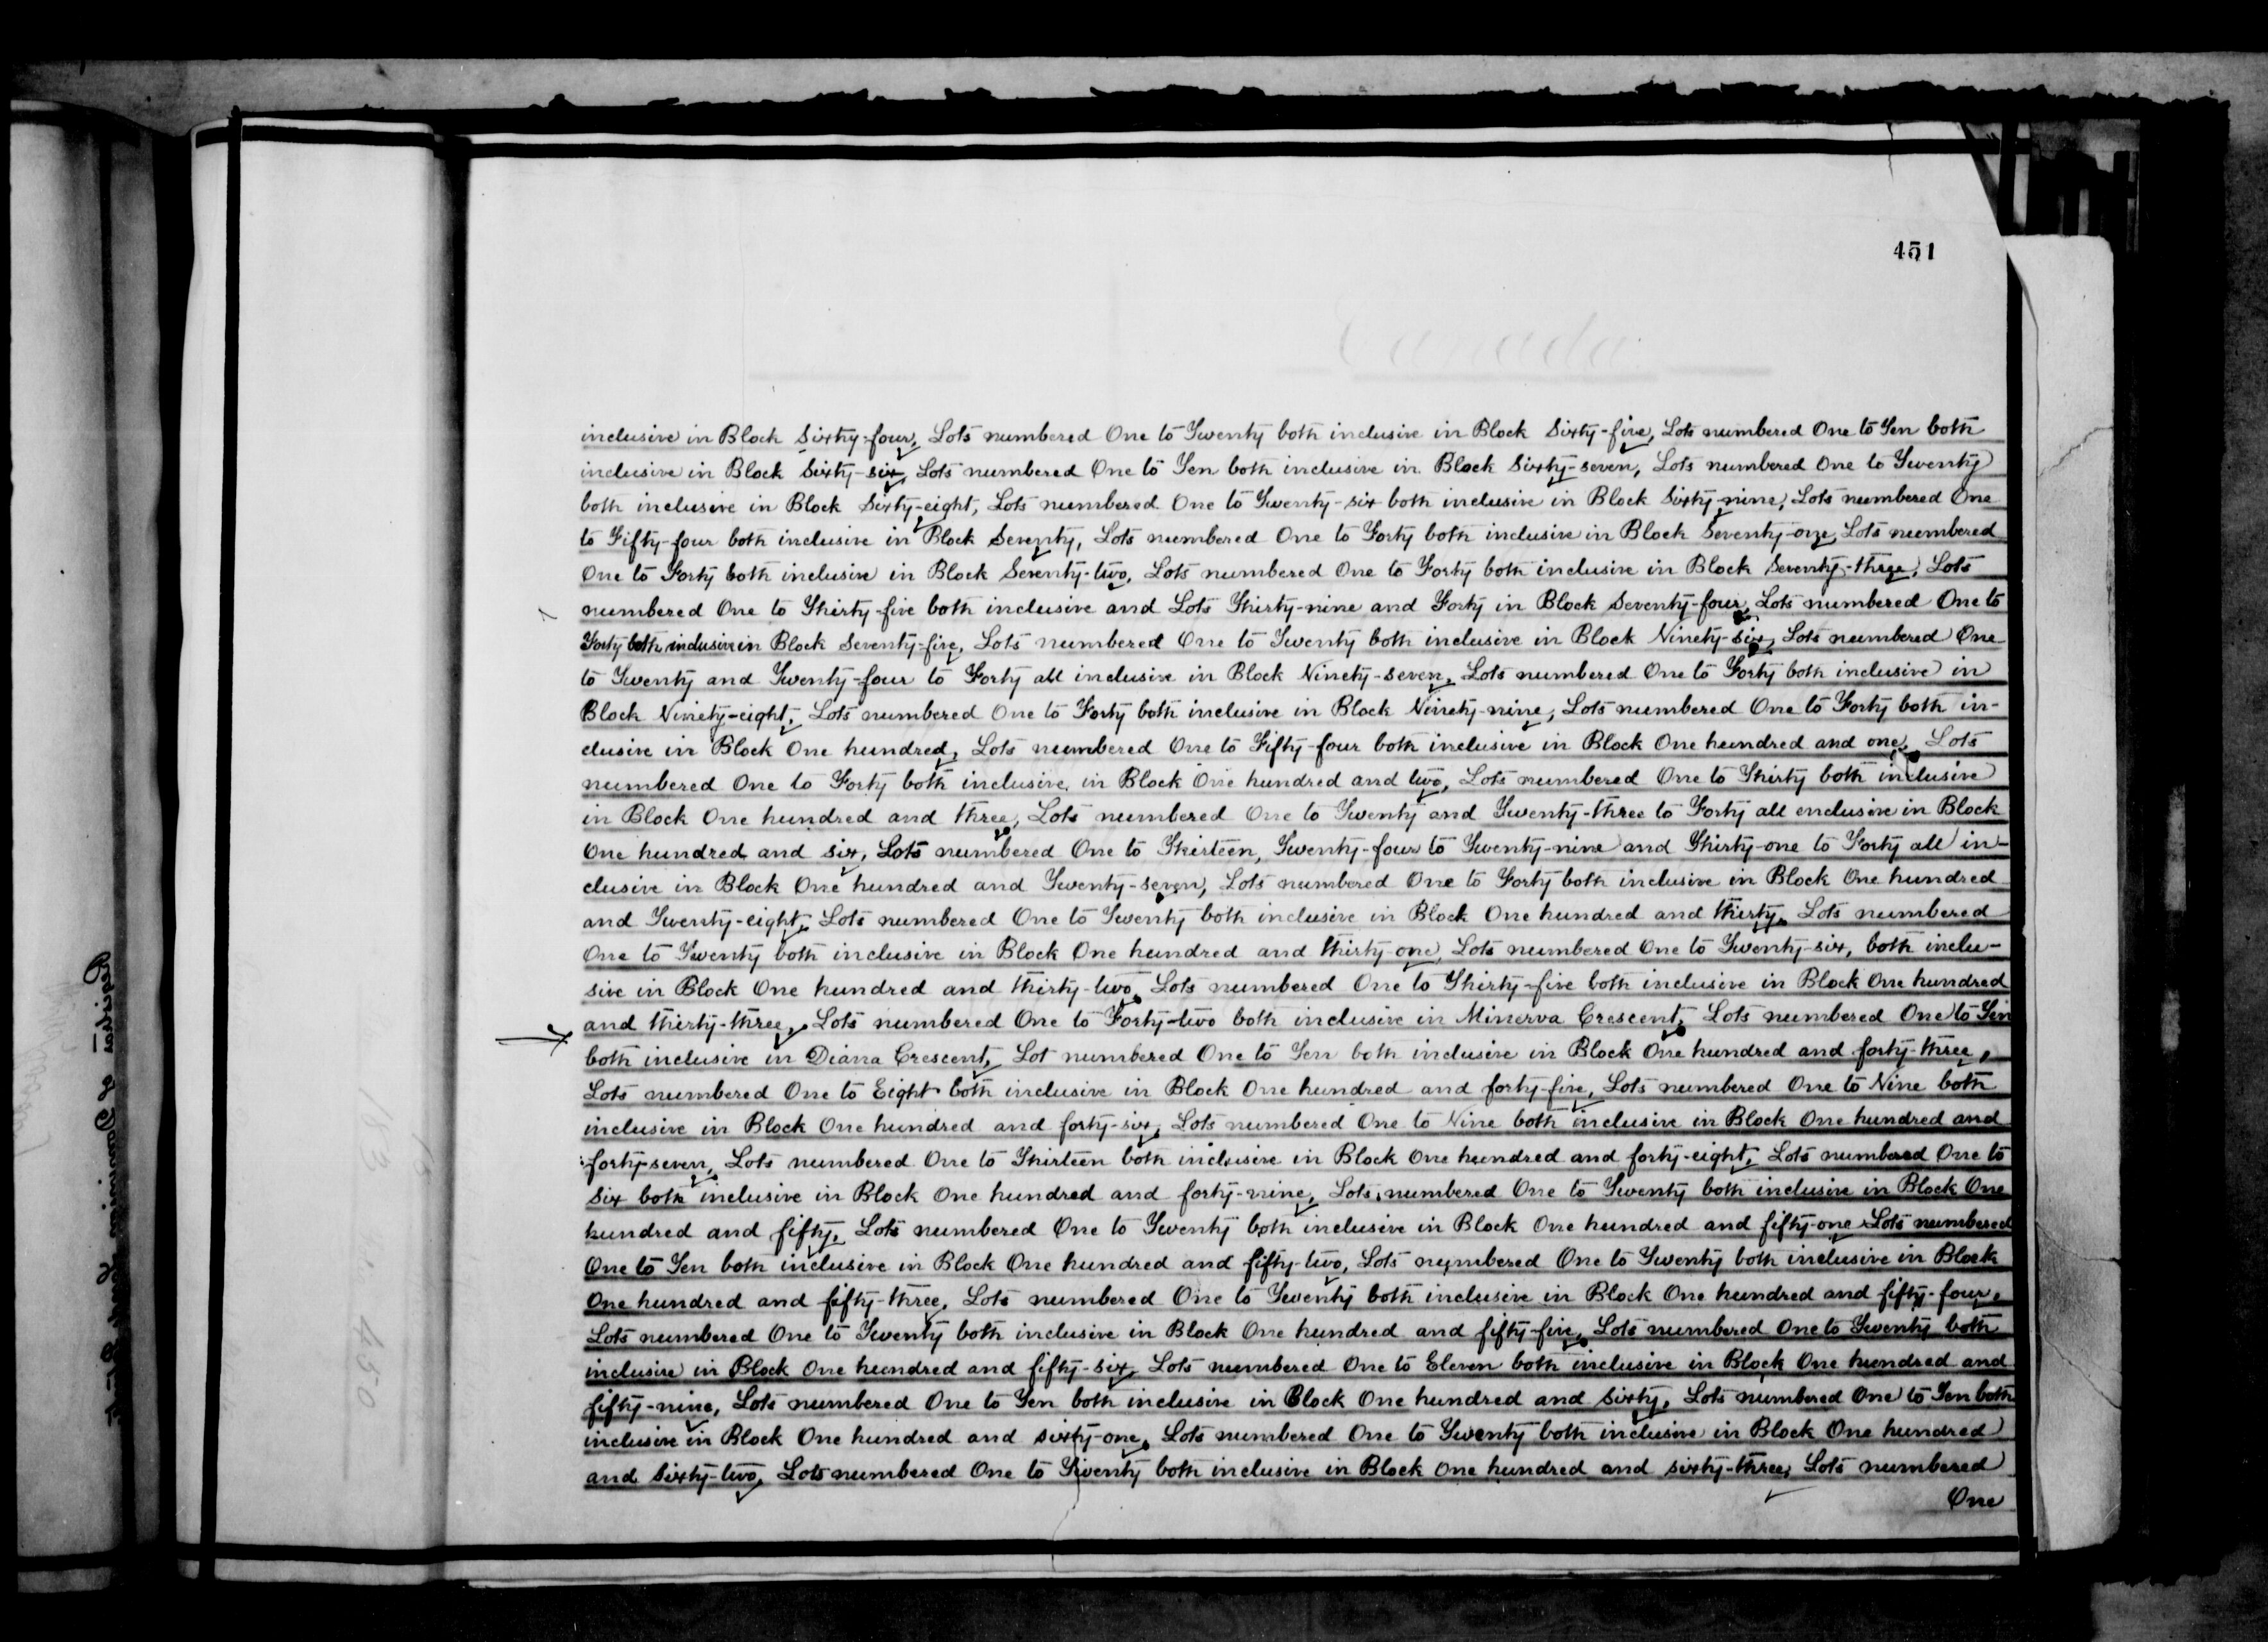 451
Canada
inclusive in Block Sixty-four, Lots numbered One to Twenty both inclusive in Block Sixty-five, Lots numbered One to Ten both
inclusive in Block Sixty-six, Lots numbered One to Ten both inclusive in Block Sixty-seven, Lots numbered One to Twenty
both inclusive in Block Sixty-eight, Lots numbered One to Twenty-six both inclusive in Block Sixty-nine, Lots numbered One
to Fifty-four both inclusive in Block Seventy, Lots numbered One to Forty both inclusive in Block Seventy-one, Lots numbered
One to Forty both inclusive in Block Seventy-two, Lots numbered One to Forty both inclusive in Block Seventy-three, Lots
numbered One to Thirty-five both inclusive and Lots Thirty-nine and Forty in Block Seventy-four, Lots numbered One to
Forty both inclusive in Block Seventy-five, Lots numbered One to Twenty both inclusive in Block Ninety-six, Lots numbered One
to Twenty and Twenty-four to Forty all inclusive in Block Ninety-seven, Lots numbered One to Forty both inclusive in
Block Ninety-eight, Lots numbered One to Forty both inclusive in Block Ninety-nine, Lots numbered One to Forty both in-
clusive in Block One hundred, Lots numbered One to Fifty-four both inclusive in Block One hundred and one, Lots
numbered One to Forty both inclusive in Block One hundred and two, Lots numbered One to Thirty both inclusive
in Block One hundred and three, Lots numbered One to Twenty and Twenty-three to Forty all inclusive in Block
One hundred and six, Lots numbered One to Thirteen, Twenty-four to Twenty-nine and Thirty-one to Forty all in-
clusive in Block One hundred and Twenty-seven, Lots numbered One to Forty both inclusive in Block One hundred
and Twenty-eight, Lots numbered One to Twenty both inclusive in Block One hundred and thirty, Lots numbered
One to Twenty both inclusive in Block One hundred and thirty-one, Lots numbered One to Twenty-six, both inclu-
sive in Block One hundred and thirty-two, Lots numbered One to Thirty-five both inclusive in Block One hundred
and thirty-three, Lots numbered One to Forty-two both inclusive in Minerva Crescent, Lots numbered One to Ten
both inclusive in Diana Crescent, Lot numbered One to Ten both inclusive in Block One hundred and forty-three,
Lots numbered One to Eight both inclusive in Block One hundred and forty-five, Lots numbered One to Nine both
inclusive in Block One hundred and forty-six, Lots numbered One to Nine both inclusive in Block One hundred and
forty-seven, Lots numbered One to Thirteen both inclusive in Block One hundred and forty-eight, Lots numbered One to
Six both inclusive in Block One hundred and forty-nine, Lots numbered One to Twenty both inclusive in Block One
hundred and fifty, Lots numbered One to Twenty both inclusive in Block One hundred and fifty-one Lots numbered
One to Ten both inclusive in Block One hundred and fifty-two, Lots numbered One to Twenty both inclusive in Block
One hundred and fifty-three, Lots numbered One to Twenty both inclusive in Block One hundred and fifty-four,
Lots numbered One to Twenty both inclusive in Block One hundred and fifty-five, Lots numbered One to Twenty both
inclusive in Block One hundred and fifty-six, Lots numbered One to Eleven both inclusive in Block One hundred and
fifty-nine, Lots numbered One to Ten both inclusive in Block One hundred and Sixty, Lots numbered One to Ten both
inclusive in Block One hundred and sixty-one, Lots numbered One to Twenty both inclusive in Block One hundred
and Sixty-two, Lots numbered One to Twenty both inclusive in Block One hundred and sixty-three, Lots numbered
One